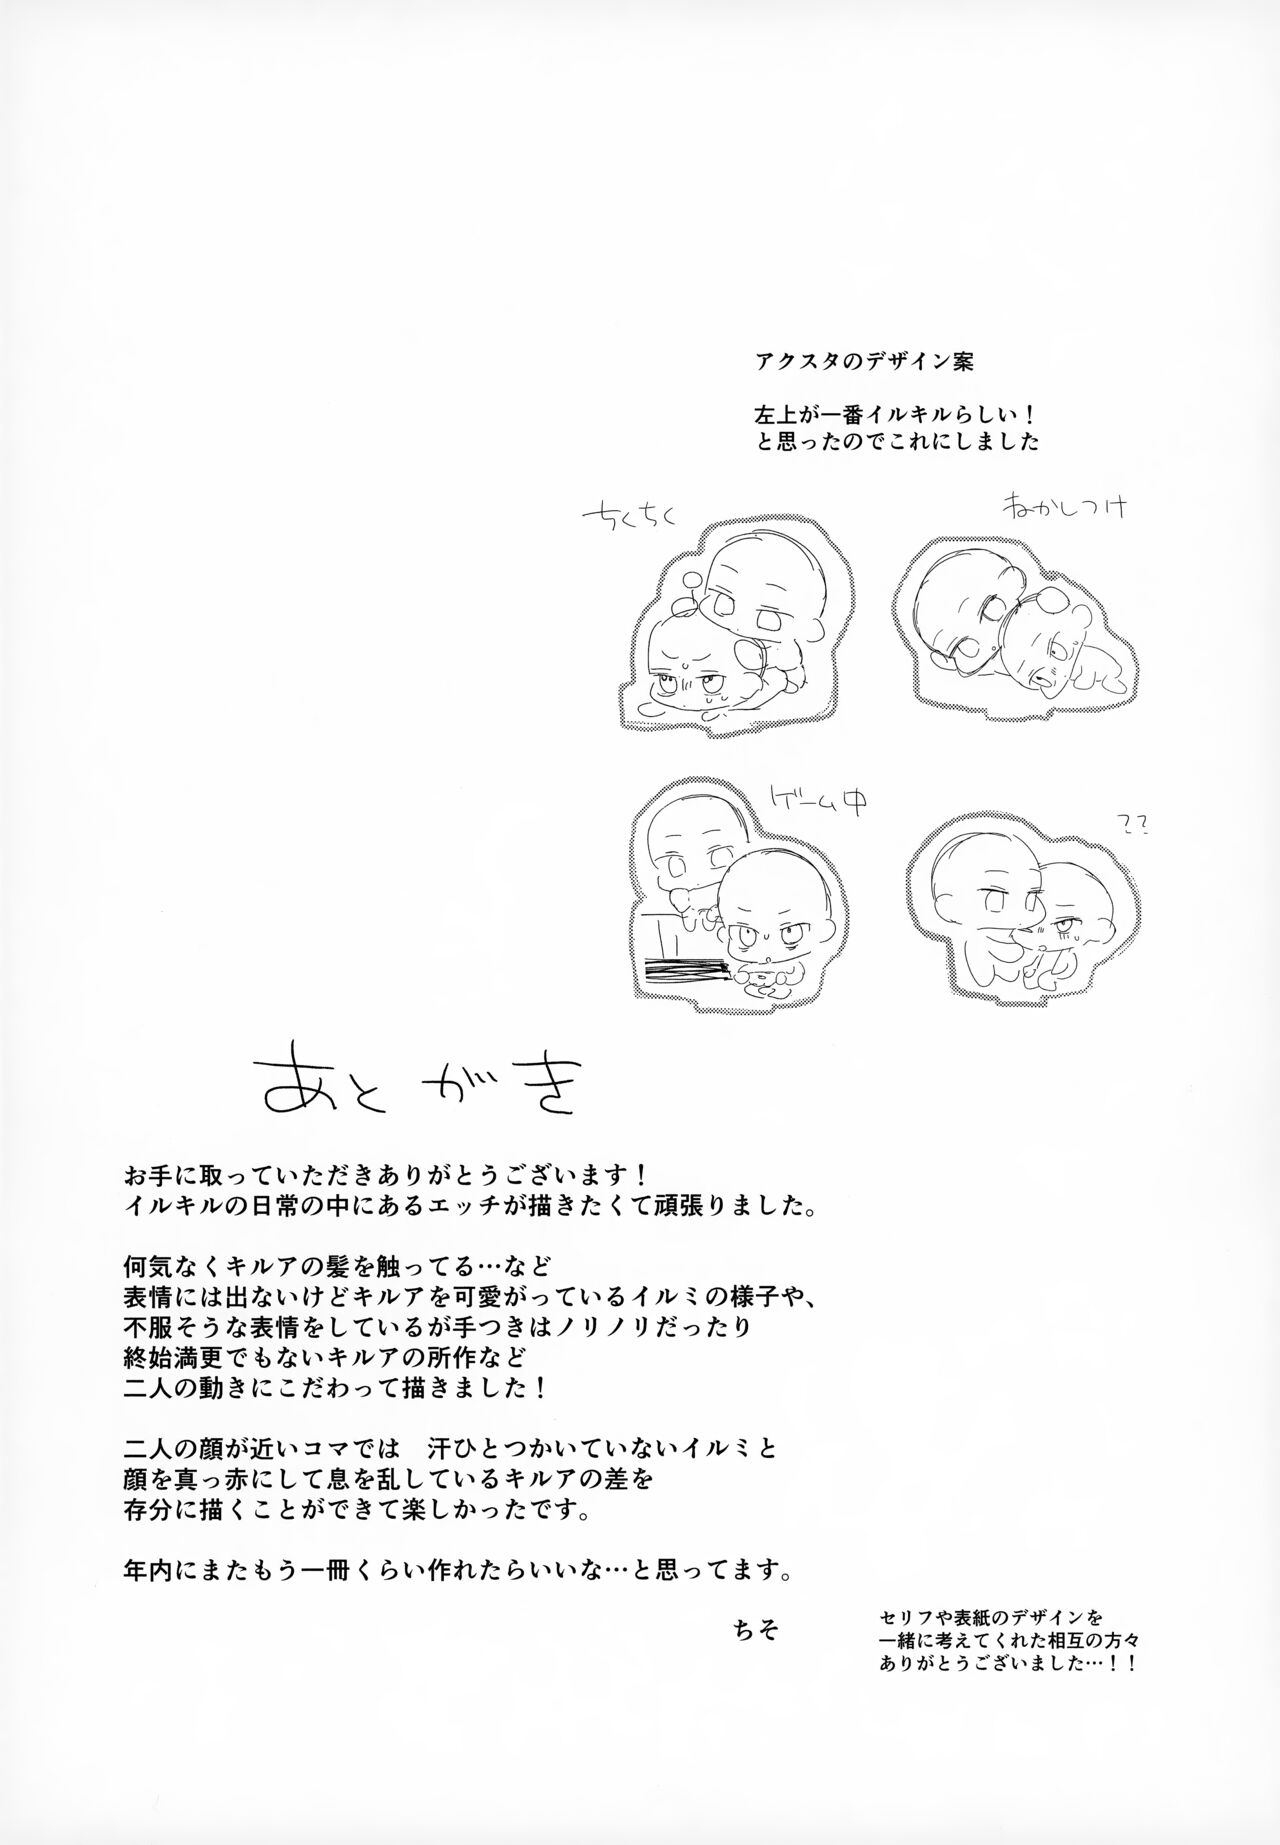 アクスタのデザイン案
左上が一番イルキルらしい！
と思ったのでこれにしました
ちくちく
ねかしつけ
ゲーム中
??
あとがき
お手に取っていただきありがとうございます！
イルキルの日常の中にあるエッチが描きたくて頑張りました。
何気なくキルアの髪を触ってる…など
表情には出ないけどキルアを可愛がっているイルミの様子や、
不服そうな表情をしているが手つきはノリノリだったり
終始満更でもないキルアの所作など
二人の動きにこだわって描きました！
二人の顔が近いコマでは　汗ひとつかいていないイルミと
顔を真っ赤にして息を乱しているキルアの差を
存分に描くことができて楽しかったです。
年内にまたもう一冊くらい作れたらいいな…と思ってます。
ちそ
セリフや表紙のデザインを
一緒に考えてくれた相互の方々
ありがとうございました…！！